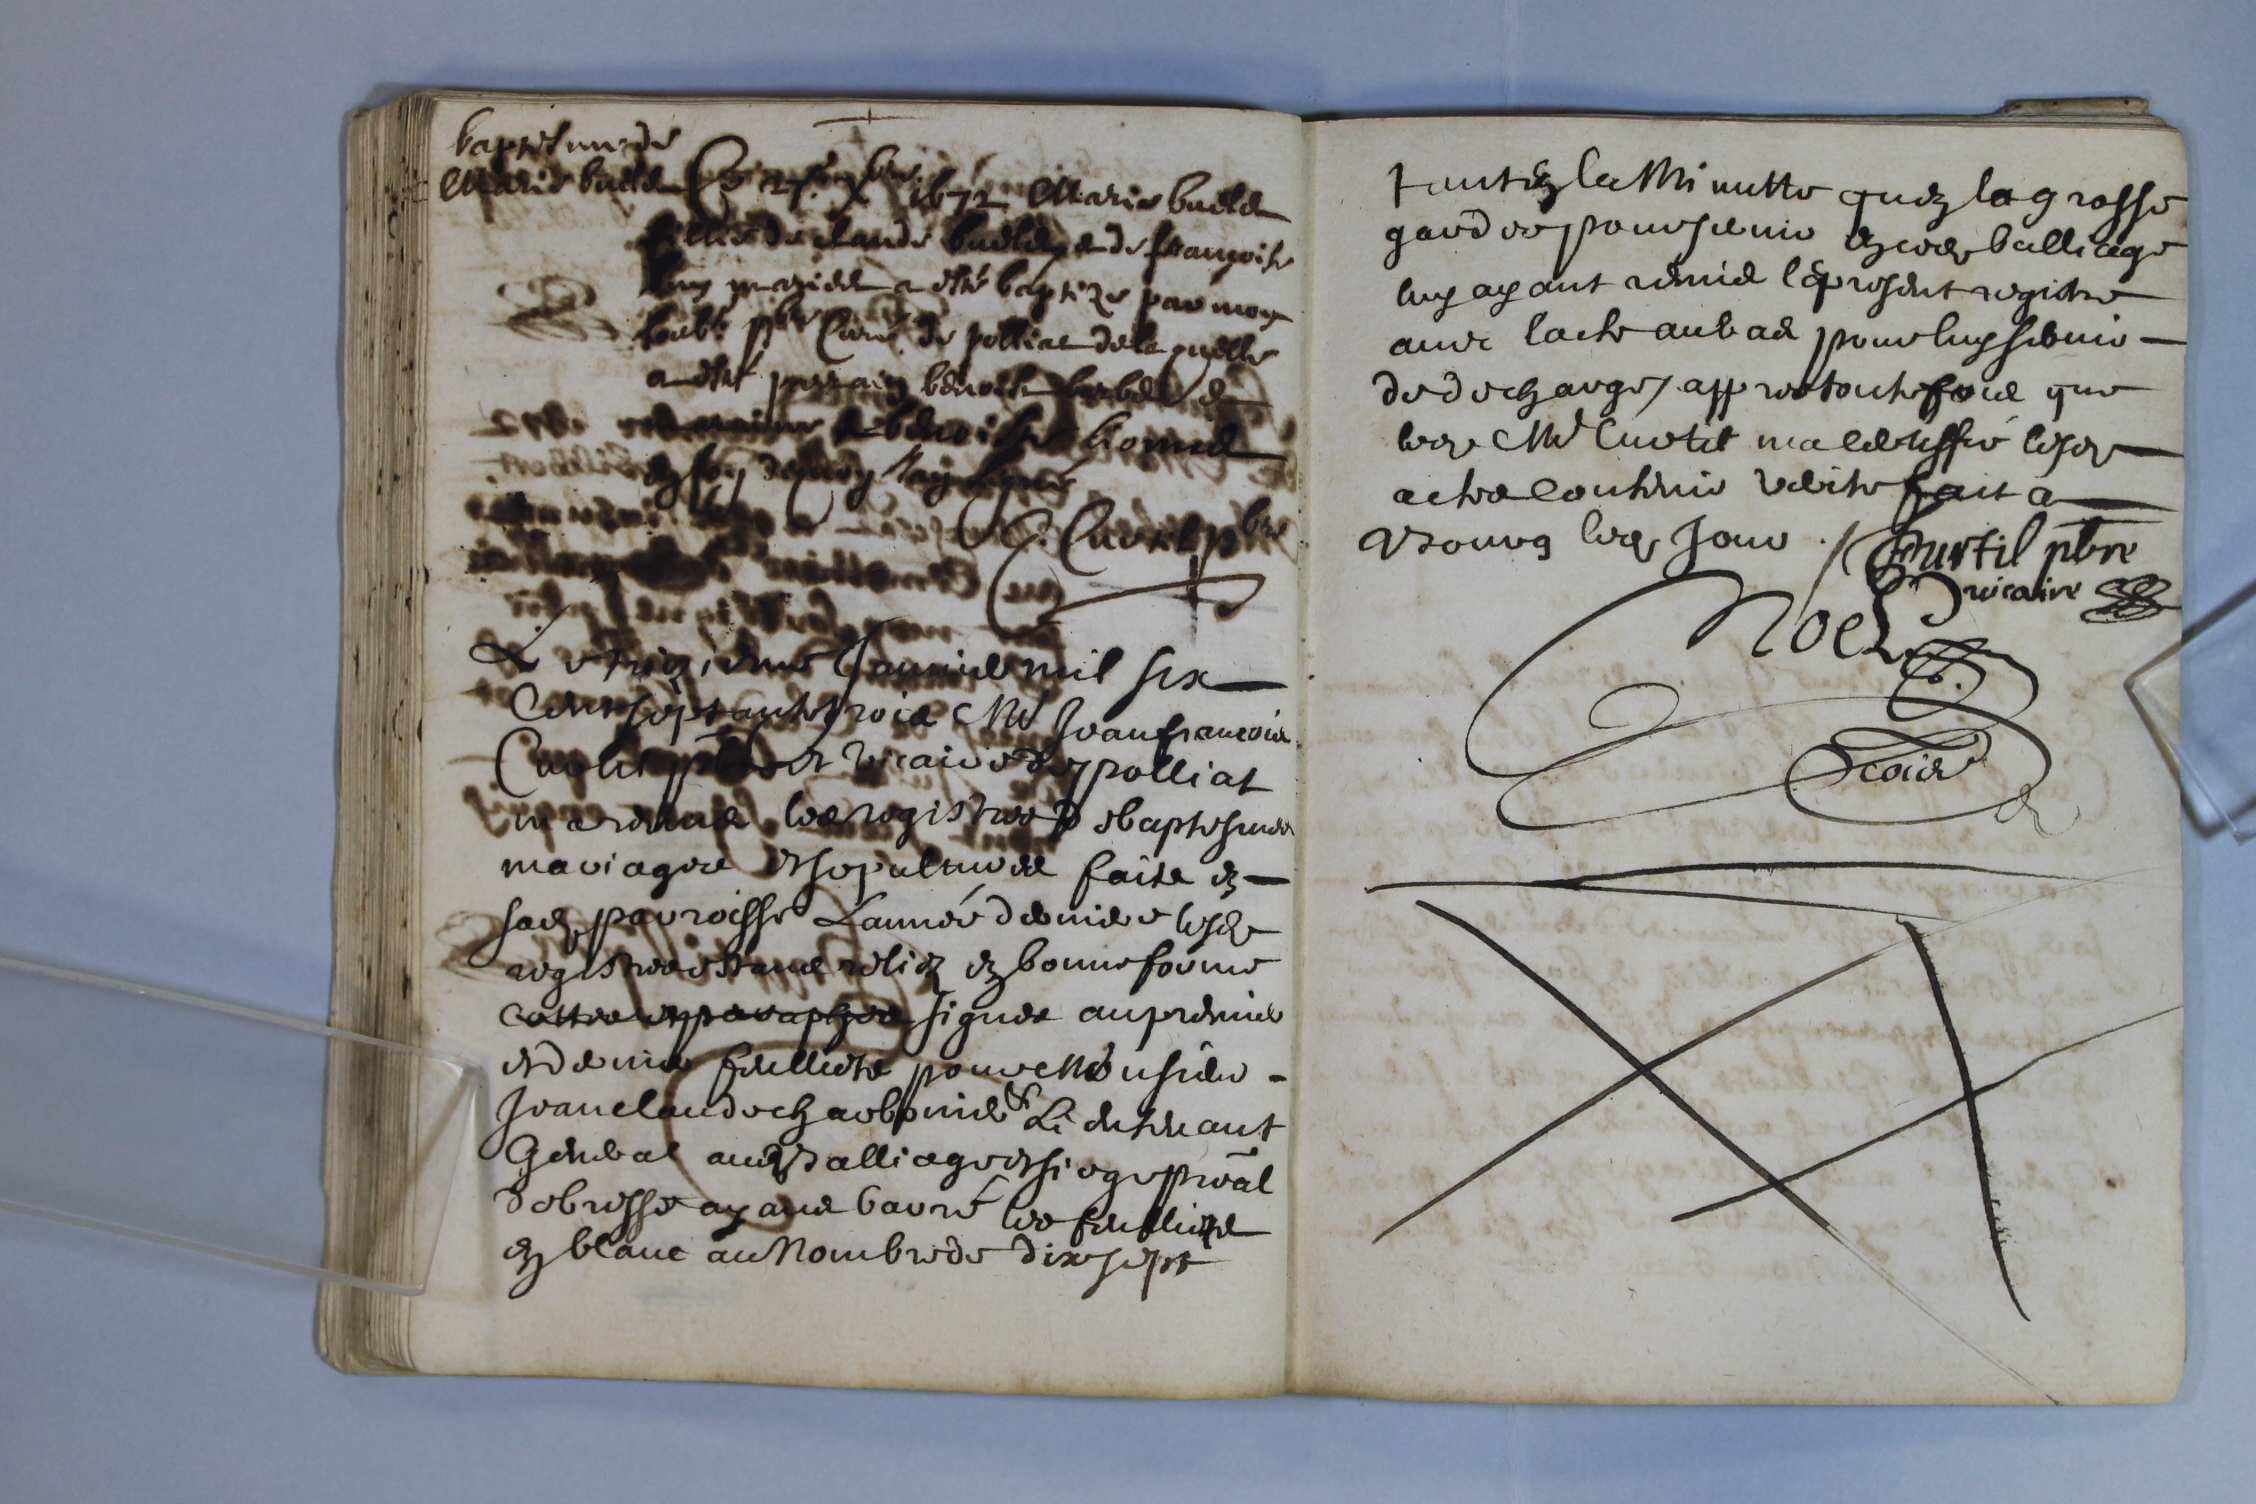 baptesme de
Marie buelle Ce 27 Xbre 1672 Marie buelle
fille de claude buelle et de francoise
mariez a esté baptize par moy
pbre Curé de polliat de laquelle
a esté parrain benoist et
et marraine benoiste
en foy dequoy j'ay signé
C. Curtil pbre
Le treiziesme Janvier mil six
Cent septante trois Mre Jean francois
Curtil pbre et vicaire de polliat
m'a remis les registres de baptesmes
mariages et sepultures faite en
sad. parroisse L'année derniere lesd.
registres estans reliez en bonne forme
cottes et paraphes signes au premier
et dernier feulliets par Monsieur
Jean claude charbonnier Lieutenant
General au Balliage et siege presal
de bresse ayans barré les feulliets
en blanc au Nombre de dix sept
tant en la Minutte qu'en la grosse
gardee pour servir en ced. balliage
luy ayant remis le present registre
avec l'acte au bas pour luy servir
de decharge / appres toutesfois que
led. Mre Curtil m'a certiffié lesd.
actes contenir verite fait a
Bourg led. Jour . /
Curtil pbre
vicaire
Noel